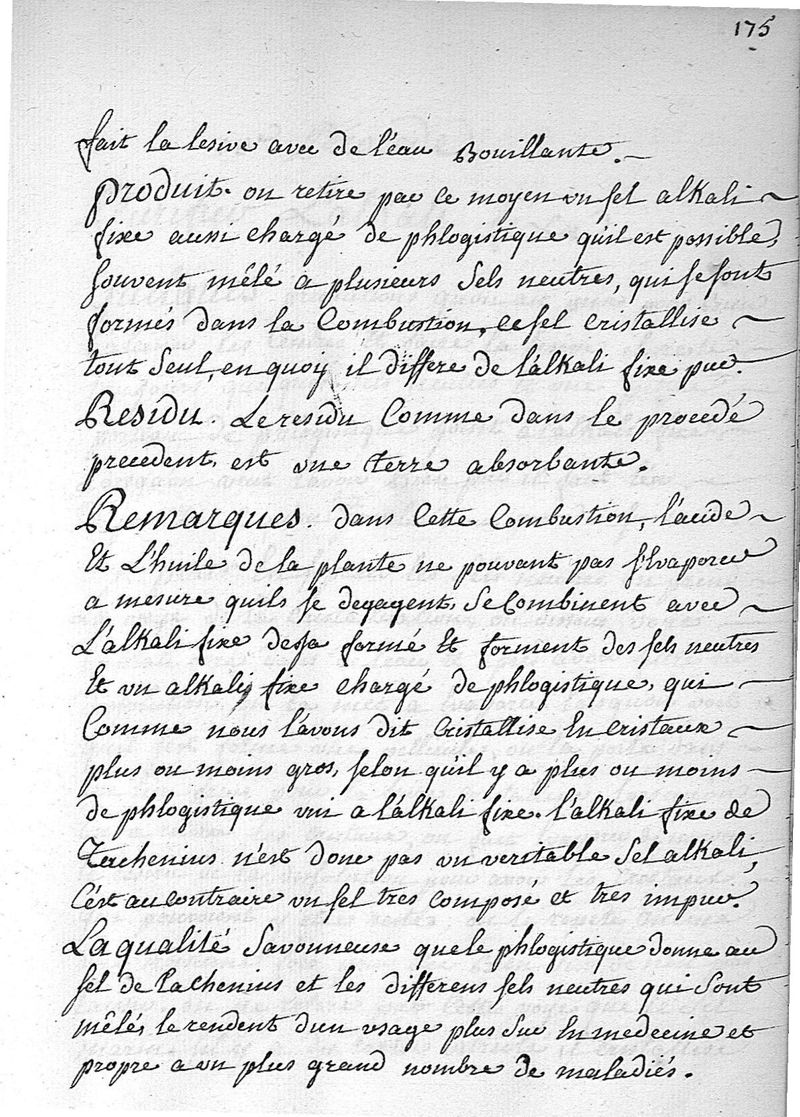 175
fait la lesive avec de l'eau Bouillante.
produit. on retire par ce moyen un sel alkali
fixe aussi chargé de phlogistique qu'il est possible,
souvent mêlé a plusieurs Sels neutres, qui se sont
formés dans la Combustion, ce sel cristallise
tout seul, en quoy il differe de l'alkali fixe pur.
Residu. Le residu Comme dans le procedé
precedent, est une terre absorbante.
Remarques. dans Cette Combustion, l'acide
Et L'huile de la plante ne pouvant pas s'Evaporer
a mesure quils se degagent, se Combinent avec
L'alkali fixe desja formé Et forment des sels neutres
Et un alkali fixe chargé de phlogistique, qui
Comme nous l'avons dit Cristallise En cristaux
plus ou moins gros, selon qu'il y a plus ou moins
de phlogistique uni a l'alkali fixe. l'alkali fixe de
Tachenius n'est donc pas un veritable Sel alkali,
C'est au contraire un sel tres composé et tres impur.
La qualité Savonneuse que le phlogistique donne au
sel de Tachenius et les differens sels neutres qui sont
mêlés, le rendent d'un usage plus sur En medecine et
propre a un plus grand nombre de maladiés.